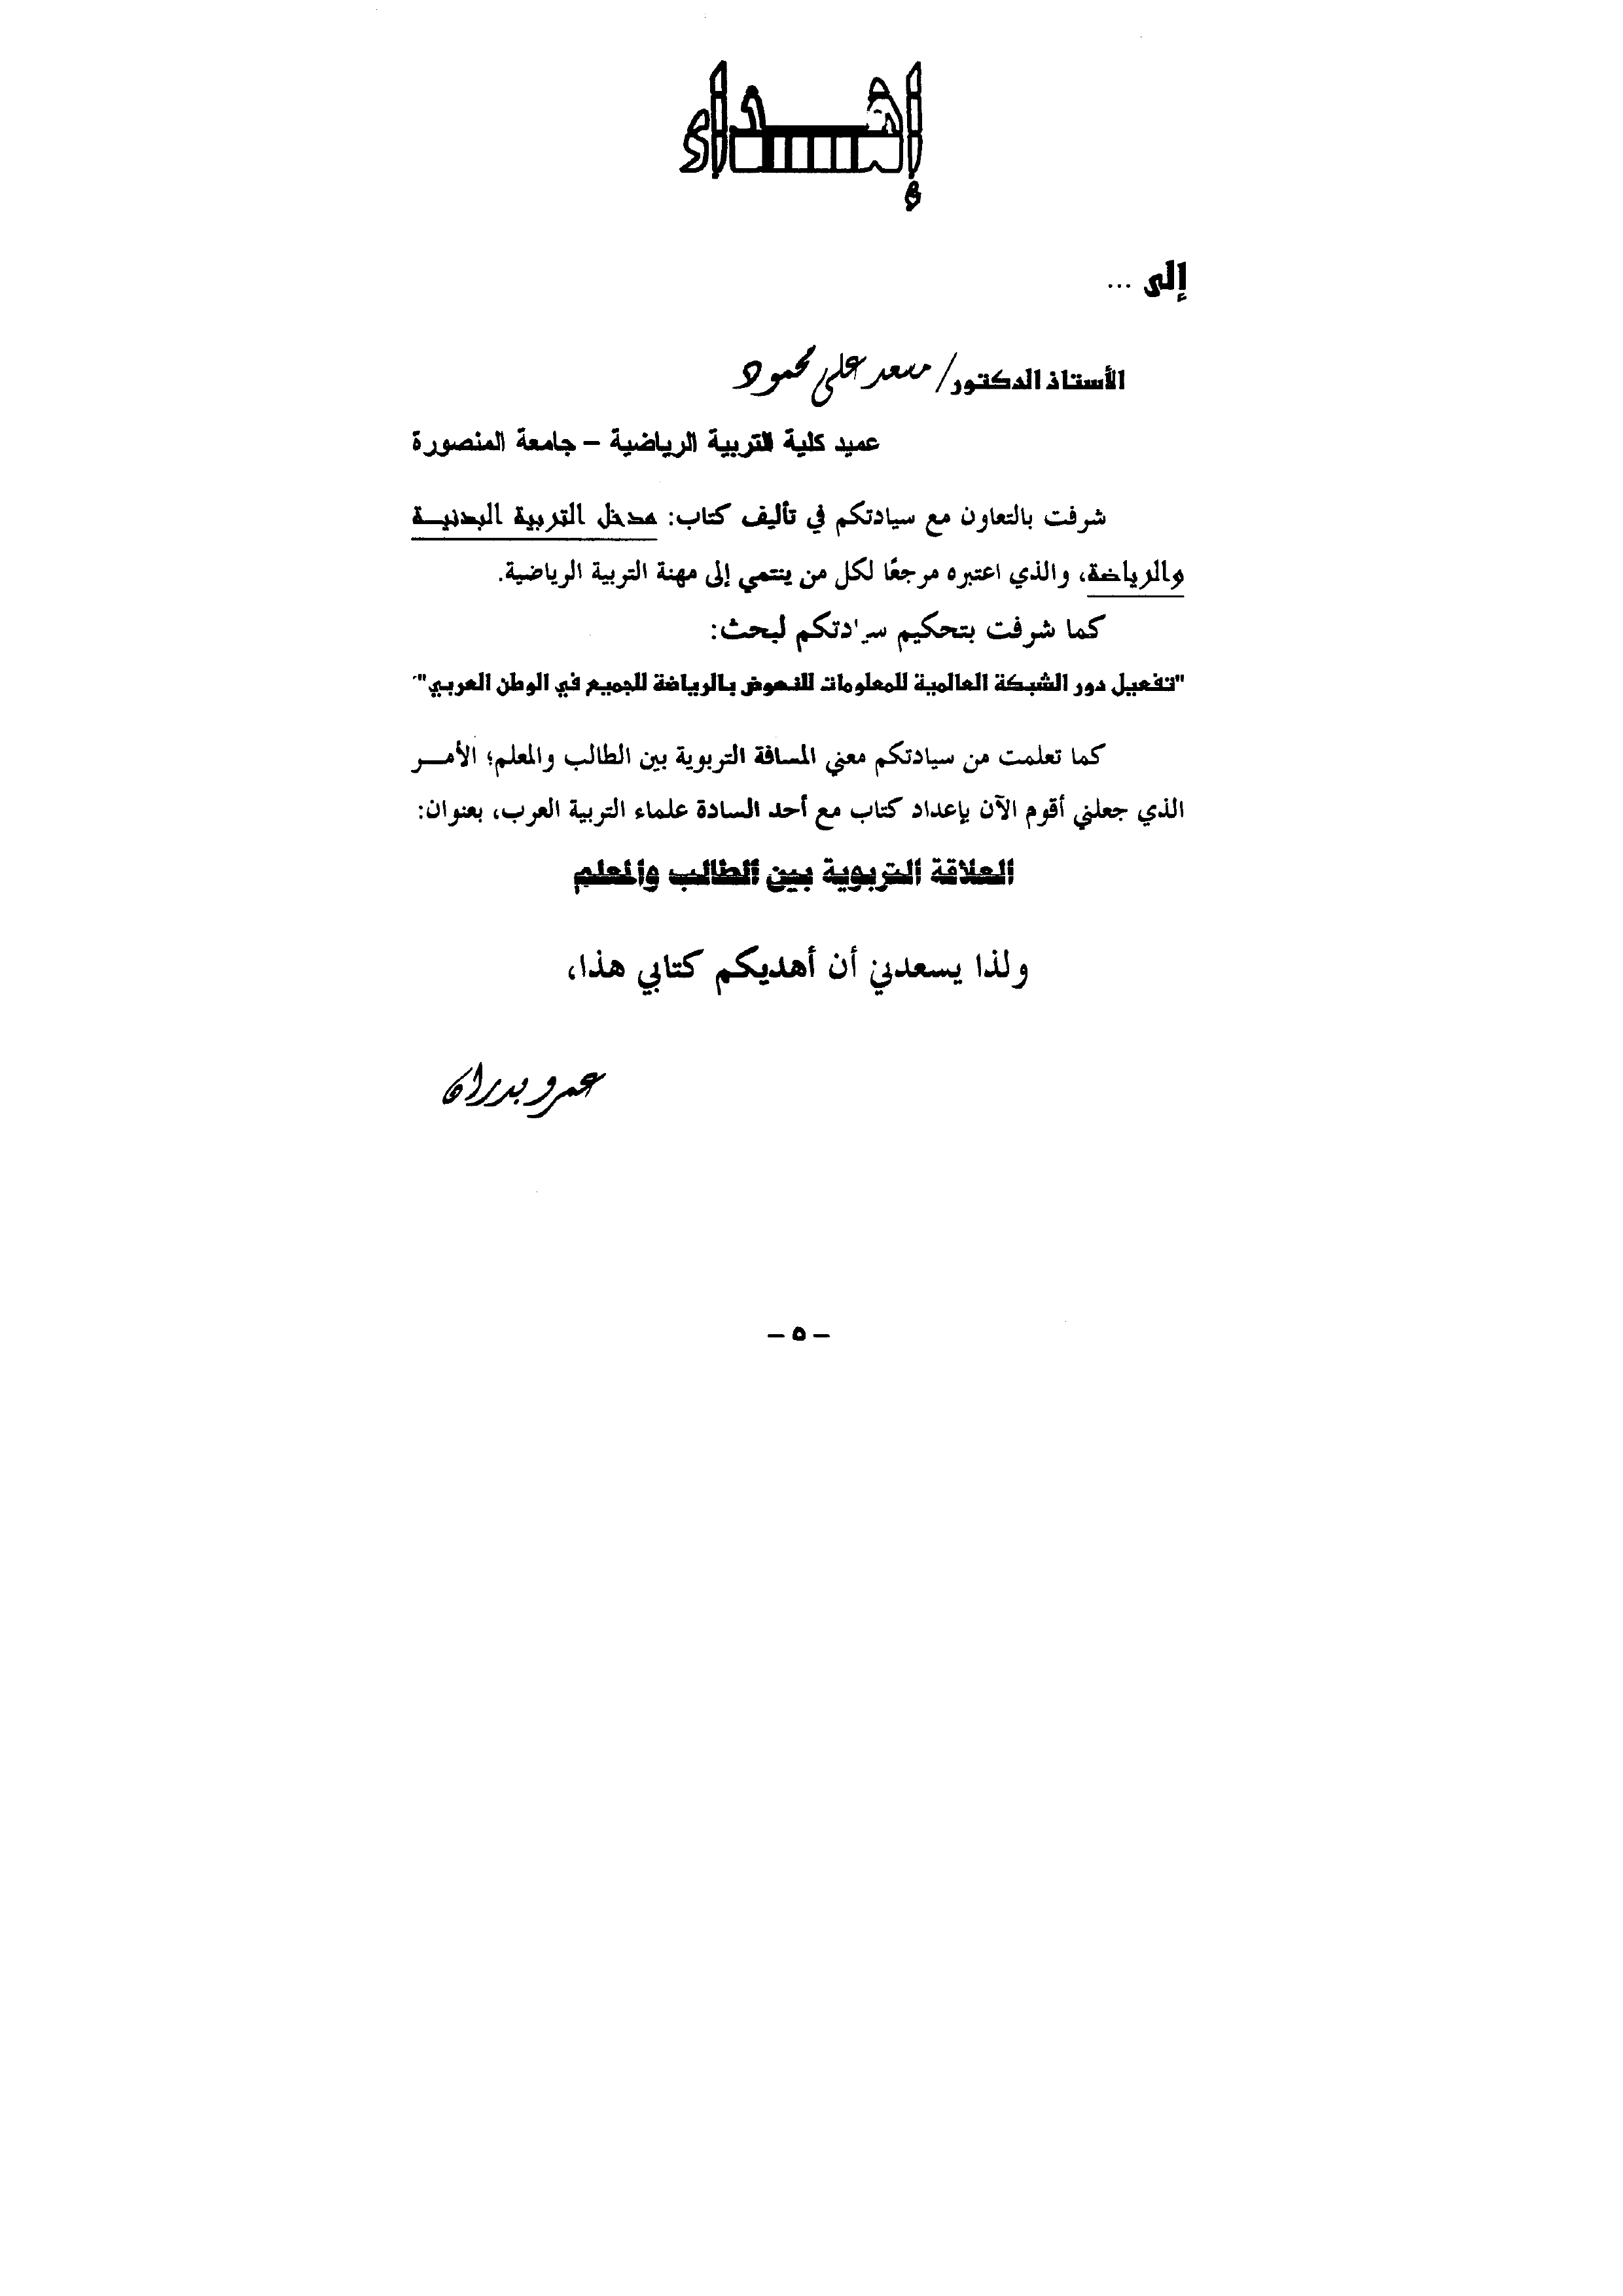 إهداء
إلى ...
الأستاذ الدكتور/ مسعد على محمود
عميد كلية التربية الرياضية – جامعة المنصورة
شرفت بالتعاون مع سيادتكم في تأليف كتاب: مدخل التربية البدنيـة
والرياضة، والذي اعتبره مرجعًا لكل من ينتمي إلى مهنة التربية الرياضية.
كما شرفت بتحكيم سيادتكم لبحث:
"تفعيل دور الشبكة العالمية للمعلومات للنهوض بالرياضة للجميع في الوطن العربي"
كما تعلمت من سيادتكم معني المسافة التربوية بين الطالب والمعلم؛ الأمـر
الذي جعلني أقوم الآن بإعداد كتاب مع أحد السادة علماء التربية العرب، بعنوان:
العلاقة التربوية بين الطالب والمعلم
ولذا يسعدني أن أهديكم كتابي هذا،
عمرو بدران
– ٥ –